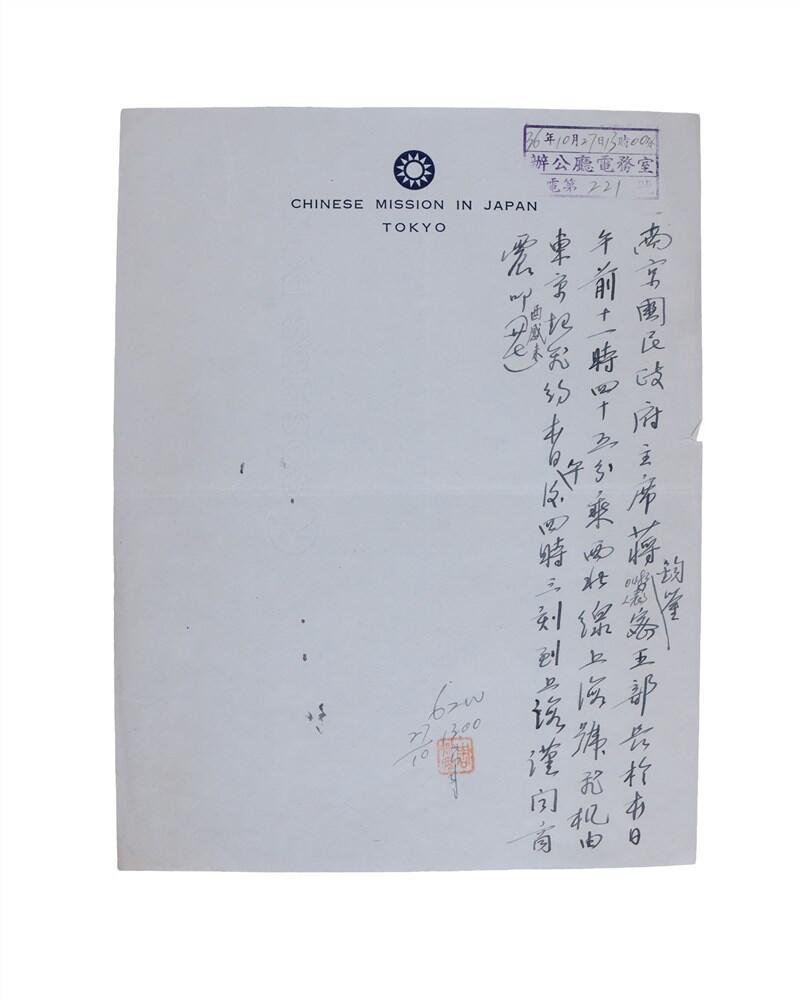 CHINESE MISSION IN JAPAN
TOKYO
36年10月27日13時00分
辦公廳電務室
電第221號
南京國民政府主席蔣鈞鑒密王部長於本日
午前十一時四十五分乘西北線上海號飛机由
東京起飛約本日午後四時三刻到上海謹聞商
震叩
62W
13.00
27/10